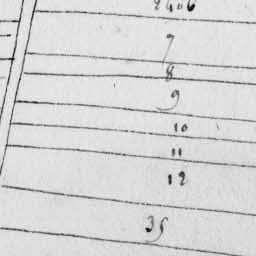 2406
7
8
9
10
11
12
35